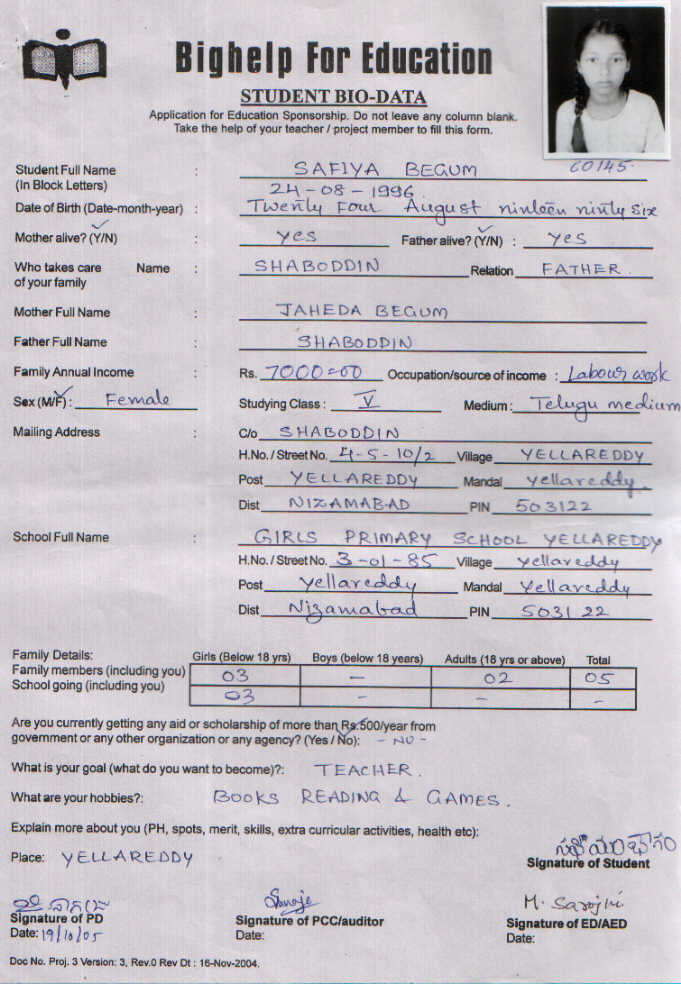 Bighelp For Education
STUDENT BIO-DATA
Application for Education Sponsorship. Do not leave any column blank.
Take the help of your teacher / project member to fill this form.
60145.
Student Full Name : SAFIYA BEGUM
(In Block Letters)
24-08-1996
Date of Birth (Date-month-year) : Twenty Four August ninteen ninty six
Mother alive? (Y/N) : yes Father alive? (Y/N) : yes
Who takes care Name : SHABODDIN Relation FATHER.
of your family
Mother Full Name : JAHEDA BEGUM
Father Full Name : SHABODDIN
Family Annual Income : Rs. 7000=00 Occupation/source of income : Labour work
Sex (M/F) : Female Studying Class : V Medium : Telugu medium
Mailing Address : C/o SHABODDIN
H.No. / Street No. 4-5-10/2 Village YELLAREDDY
Post YELLAREDDY Mandal yellareddy.
Dist NIZAMABAD PIN 503122
School Full Name : GIRLS PRIMARY SCHOOL YELLAREDDY
H.No. / Street No. 3-01-85 Village yellareddy
Post yellareddy Mandal yellareddy
Dist Nizamabad PIN 503122
Family Details: Girls (Below 18 yrs) Boys (below 18 years) Adults (18 yrs or above) Total
Family members (including you) 03 – 02 05
School going (including you) 03 – – –
Are you currently getting any aid or scholarship of more than Rs.500/year from
government or any other organization or any agency? (Yes / No): - NO -
What is your goal (what do you want to become)?: TEACHER.
What are your hobbies?: BOOKS READING & GAMES.
Explain more about you (PH, spots, merit, skills, extra curricular activities, health etc):
Place: YELLAREDDY
Signature of Student
M. Sarojini
Signature of PD Signature of PCC/auditor Signature of ED/AED
Date: 19/10/05 Date: Date:
Doc No. Proj. 3 Version: 3, Rev.0 Rev Dt : 16-Nov-2004.